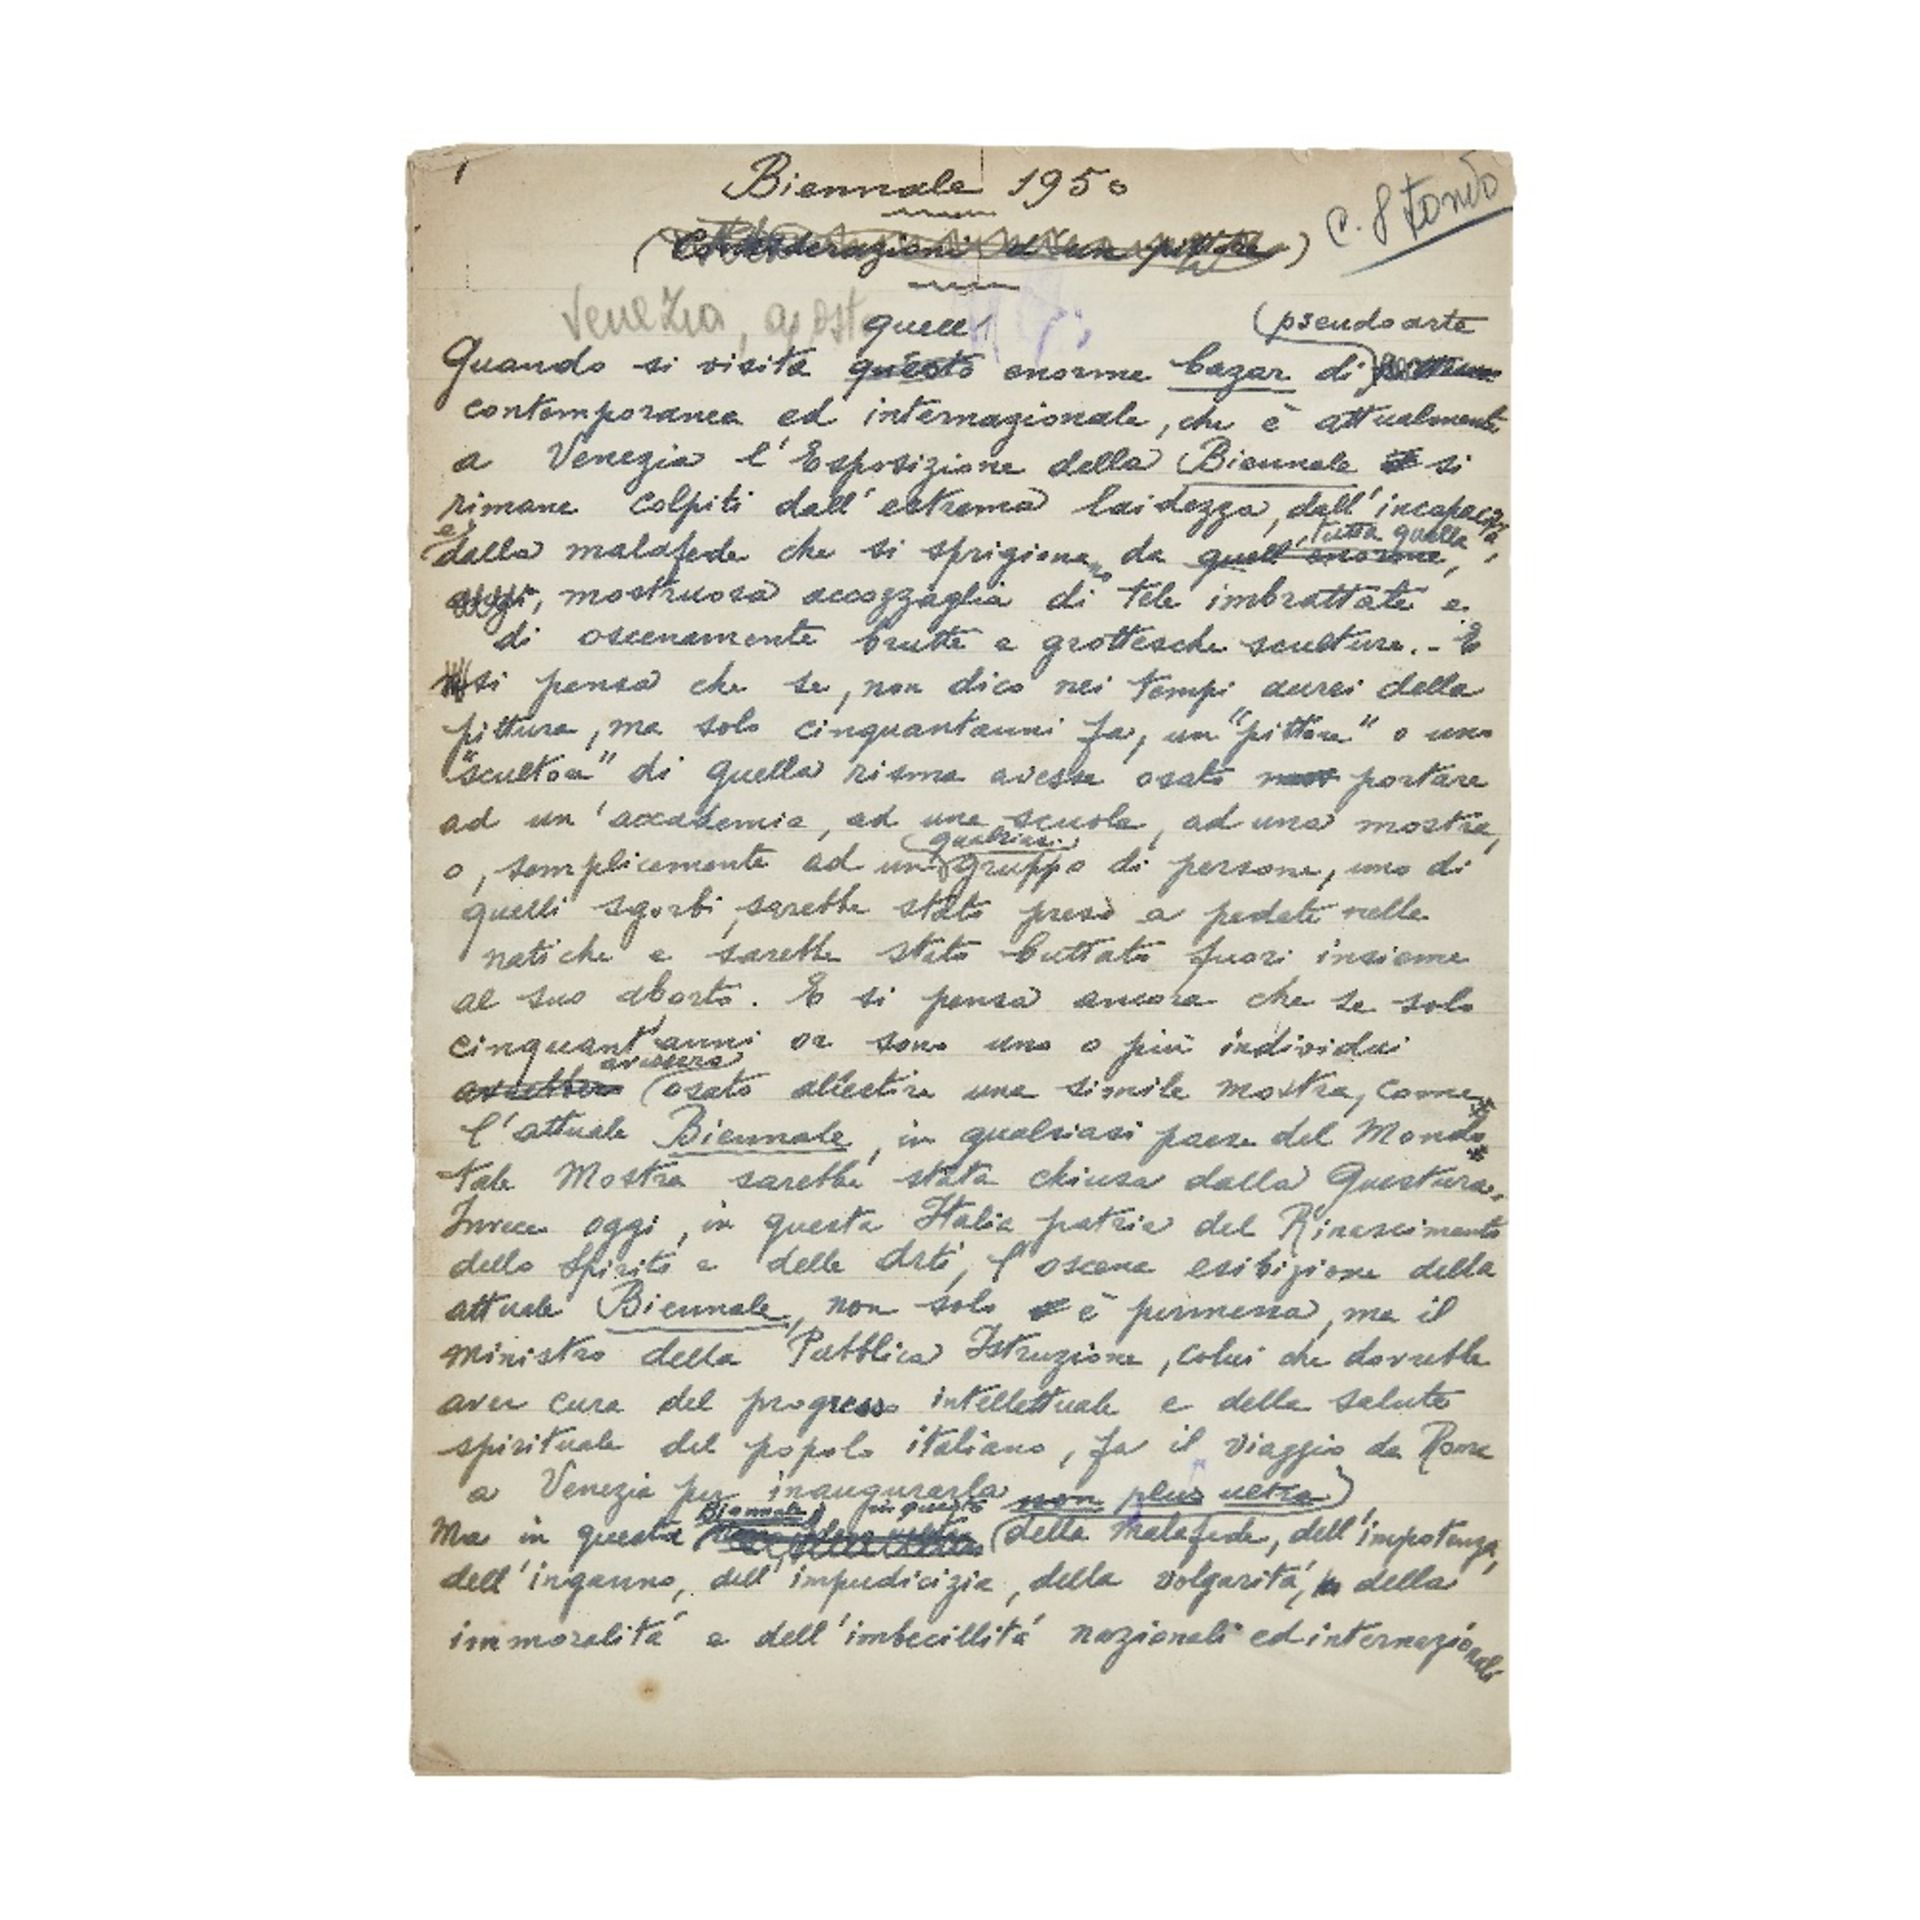 1
Biennale 1950
(Considerazioni d'un pittore)
C. 8 tondo
Venezia, agosto
quell' (pseudoarte
Quando si visita questo enorme bazar di
contemporanea ed internazionale, che è attualmente
a Venezia l'Esposizione della Biennale si
rimane colpiti dall'estrema laidezza, dall'incapacità,
e tutta quella
dalla malafede che si sprigionano da quell'enorme,
mostruosa accozzaglia di tele imbrattate e
di oscenamente brutte e grottesche sculture. - E
si pensa che se, non dico nei tempi aurei della
pittura, ma solo cinquantanni fa, un "pittore" o uno
"scultore" di quella risma avesse osato portare
ad un'accademia, ad una scuola, ad una mostra,
qualsiasi
o, semplicemente ad un gruppo di persone, uno di
quelli sgorbi, sarebbe stato preso a pedate nelle
natiche e sarebbe stato buttato fuori insieme
al suo aborto. E si pensa ancora che se solo
cinquant'anni or sono uno o più individui
avessero
avrebbero (osato allestire una simile mostra, come
l'attuale Biennale, in qualsiasi paese del Mondo
tale Mostra sarebbe stata chiusa dalla Questura.
Invece oggi, in questa Italia patria del Rinascimento
dello Spirito e delle Arti, l'oscena esibizione della
attuale Biennale, non solo è permessa, ma il
ministro della Pubblica Istruzione, colui che dovrebbe
aver cura del progresso intellettuale e della salute
spirituale del popolo italiano, fa il viaggio da Roma
a Venezia per inaugurarla
Biennale, in questo non plus ultra)
Ma in questa (della malafede, dell'impotenza,
dell'inganno, dell'impudicizia, della volgarità, della
immoralità e dell'imbecillità nazionali ed internazionali